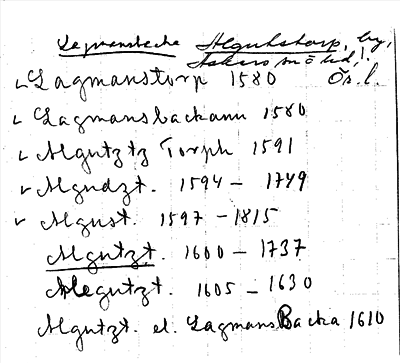 Lagmansbacka Algutstorp, by,
Askersunds ld,
Lagmanstorp 1580 Ör. l.
Lagmansbackann 1580
Algutztz Torph 1591
Algudzt. 1594 - 1749
Algust. 1597 - 1815
Algutzt. 1600 - 1737
Alegutzt. 1605 - 1630
Algutzt. el. Lagmans Backa 1610